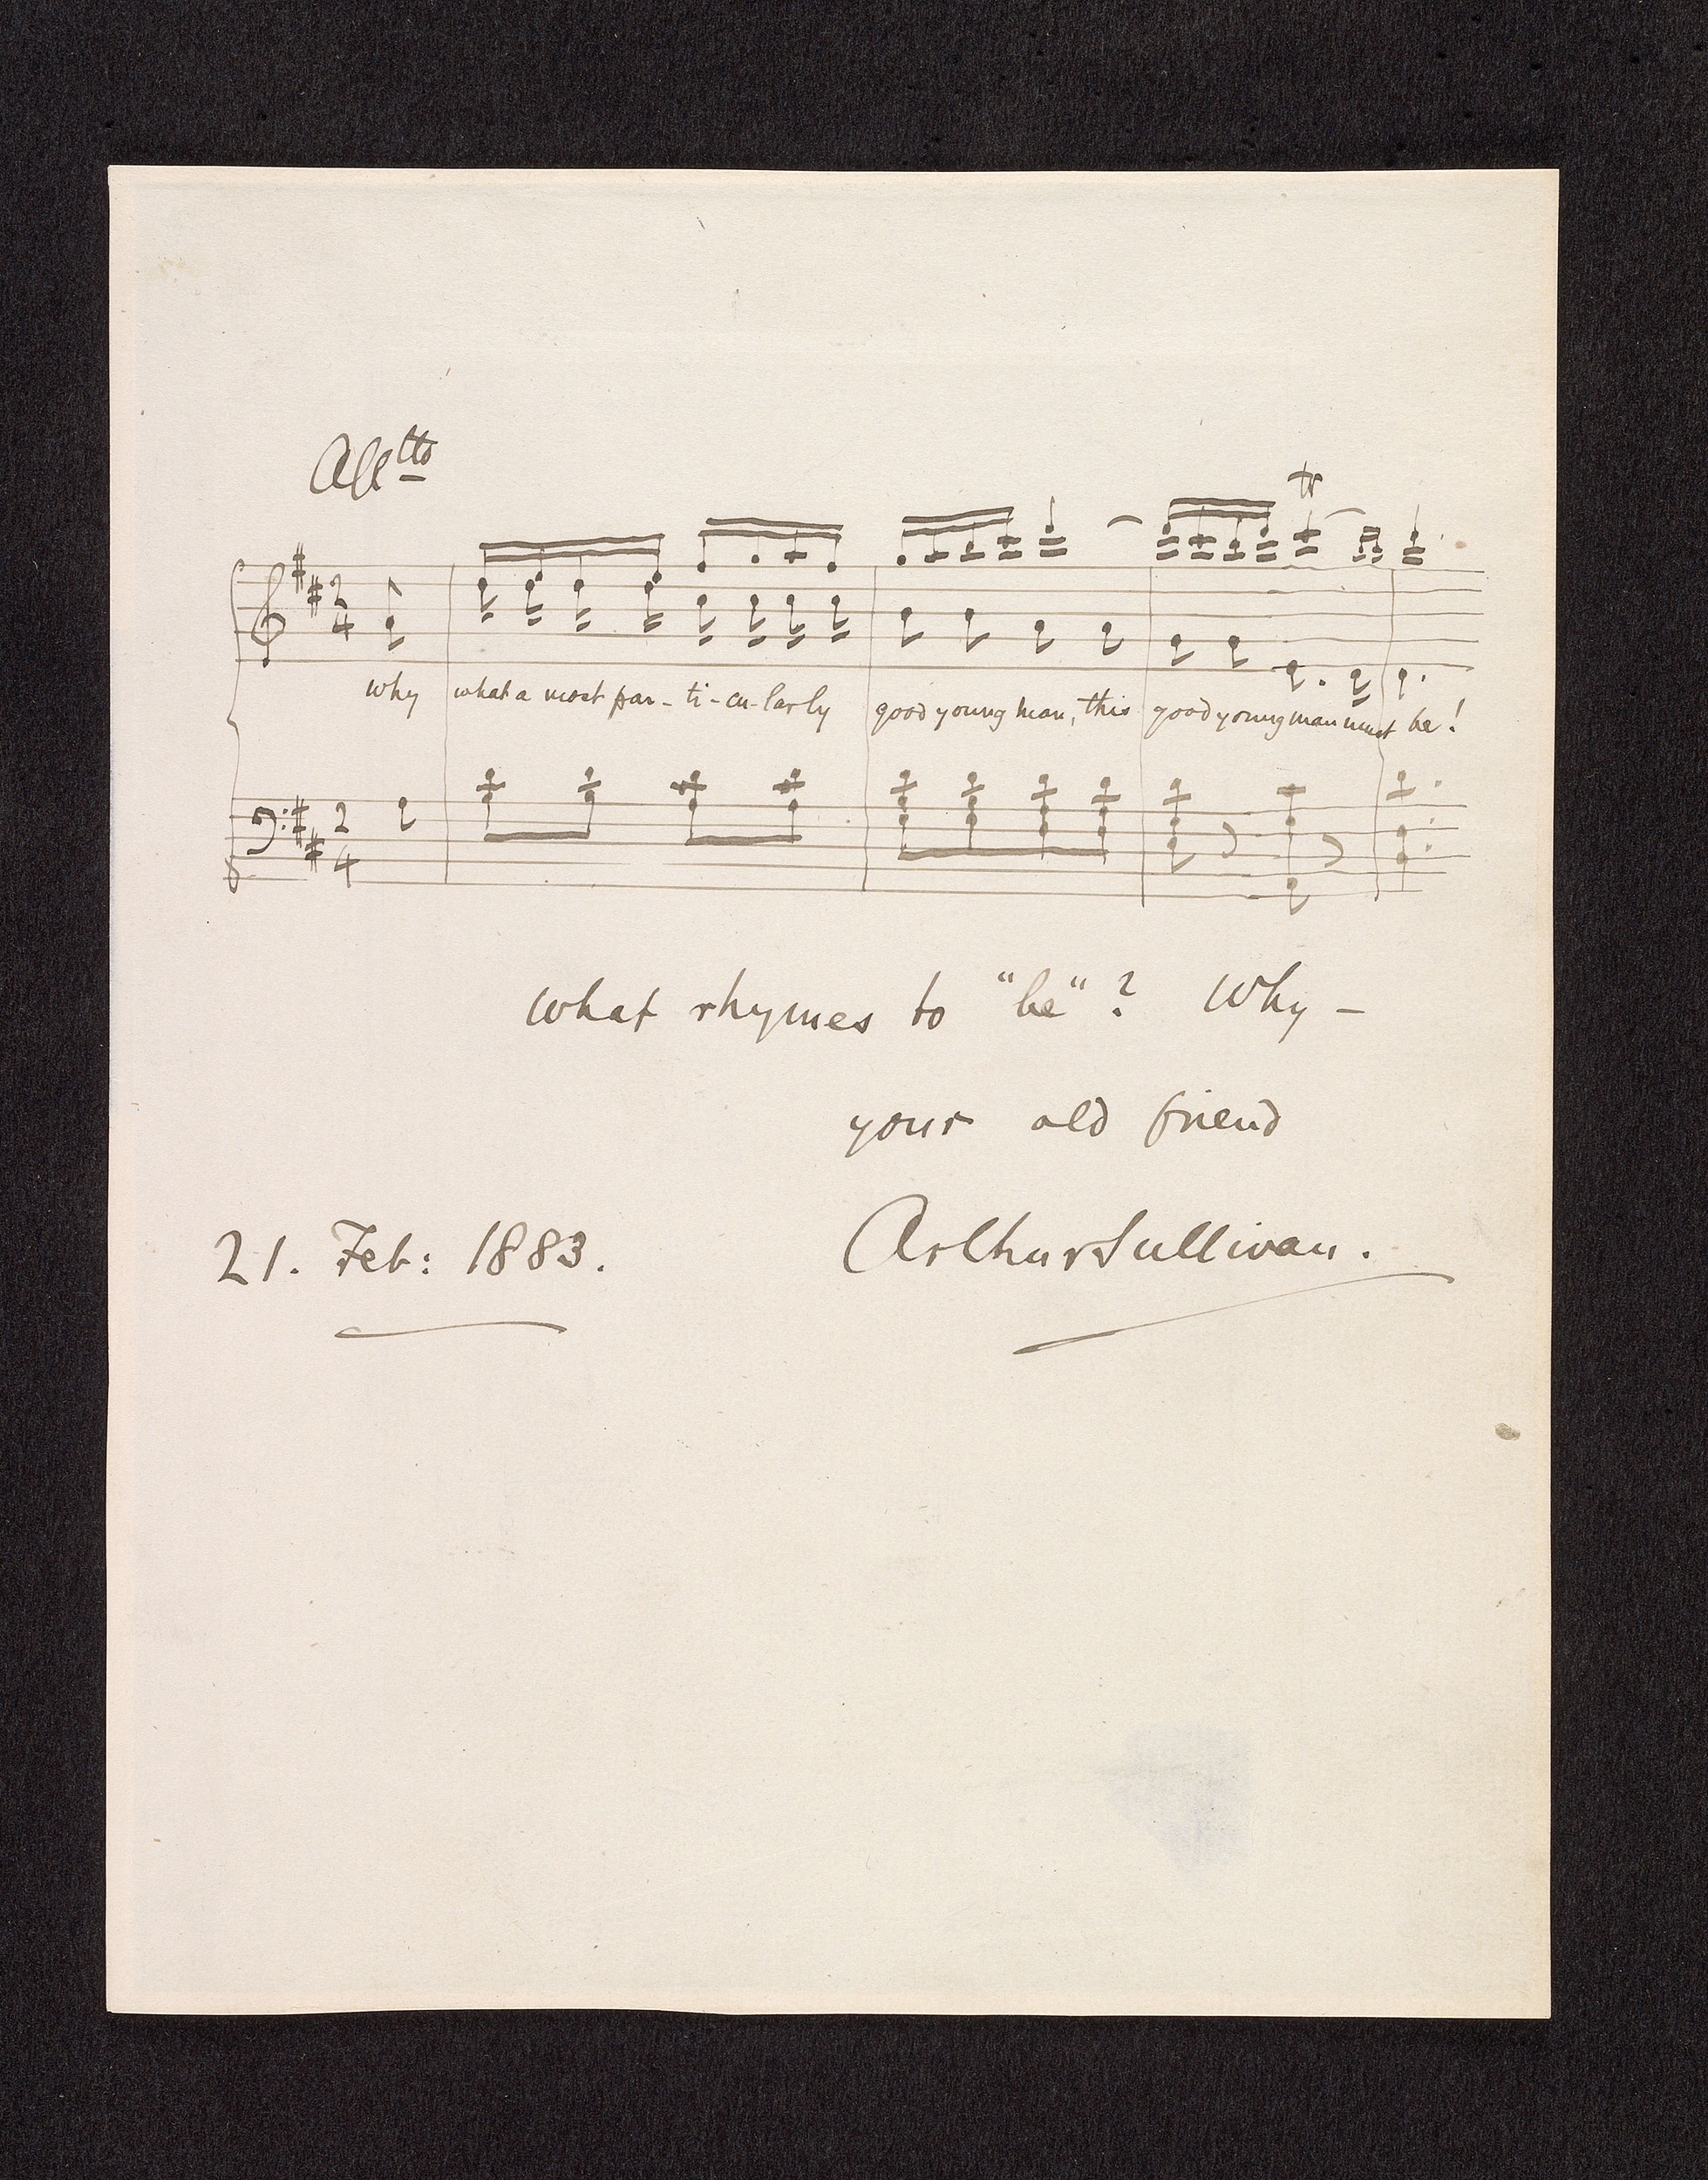 Alltto
why what a most par-ti-cu-larly good young man, this good young man must be!
what rhymes to "be"? Why —
your old friend
21. Feb: 1883. Arthur Sullivan.